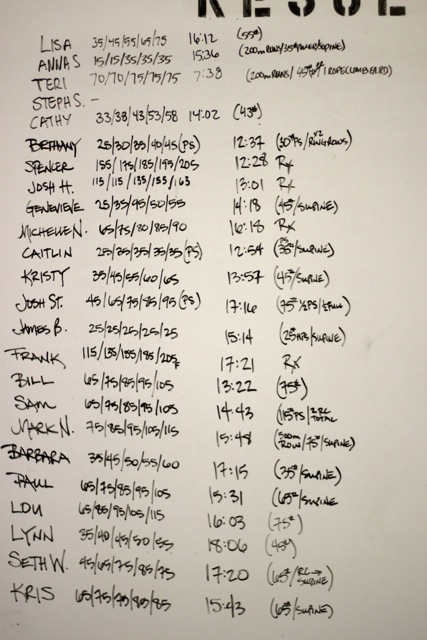 LISA 35/45/55/65/75 16:12 (55#)
ANNA S. 15/15/35/35/35 15:36 (200m RUNS/35# POWER/SUPINE)
TERI 70/70/75/75/75 7:38 (200m RUNS/45# 1 ROPE CLIMB EA RD)
STEPH S. -
CATHY 33/38/43/53/58 14:02 (43#)
BETHANY 25/30/35/40/45 (PS) 12:37 (30# PS/RING ROWS x2)
SPENCER 155/175/185/195/205 12:28 Rx
JOSH H. 115/115/135/155/163 13:01 Rx
GENEVIEVE 25/35/45/50/55 14:18 (45#/SUPINE)
MICHELLE N. 65/75/80/85/90 16:18 Rx
CAITLIN 25/35/35/35/35 (PS) 12:54 (PS 35#/SUPINE)
KRISTY 35/45/55/60/65 13:57 (45#/SUPINE)
JOSH ST. 45/65/75/85/95 (PS) 17:16 (75# ½ PS/½ FULL)
JAMES B. 25/25/25/25/25 15:14 (25# HPS/SUPINE)
FRANK 115/135/155/185/205F 17:21 Rx
BILL 65/75/85/95/105 13:22 (75#)
SAM 65/75/85/95/105 14:43 (115# PS/2 RC TOTAL
MARK N. 75/85/95/105/115 15:48 (500m ROW/75#/SUPINE)
BARBARA 35/45/50/55/60 17:15 (35#/SUPINE)
PAUL 65/75/85/95/105 15:31 (65#/SUPINE
LOU 65/85/95/105/115 16:03 (75#)
LYNN 35/40/45/50/55 18:06 (40#)
SETH W. 45/65/75/85/75 17:20 (65#/RC→ SUPINE)
KRIS 65/75/75/85/85 15:43 (65#/SUPINE)